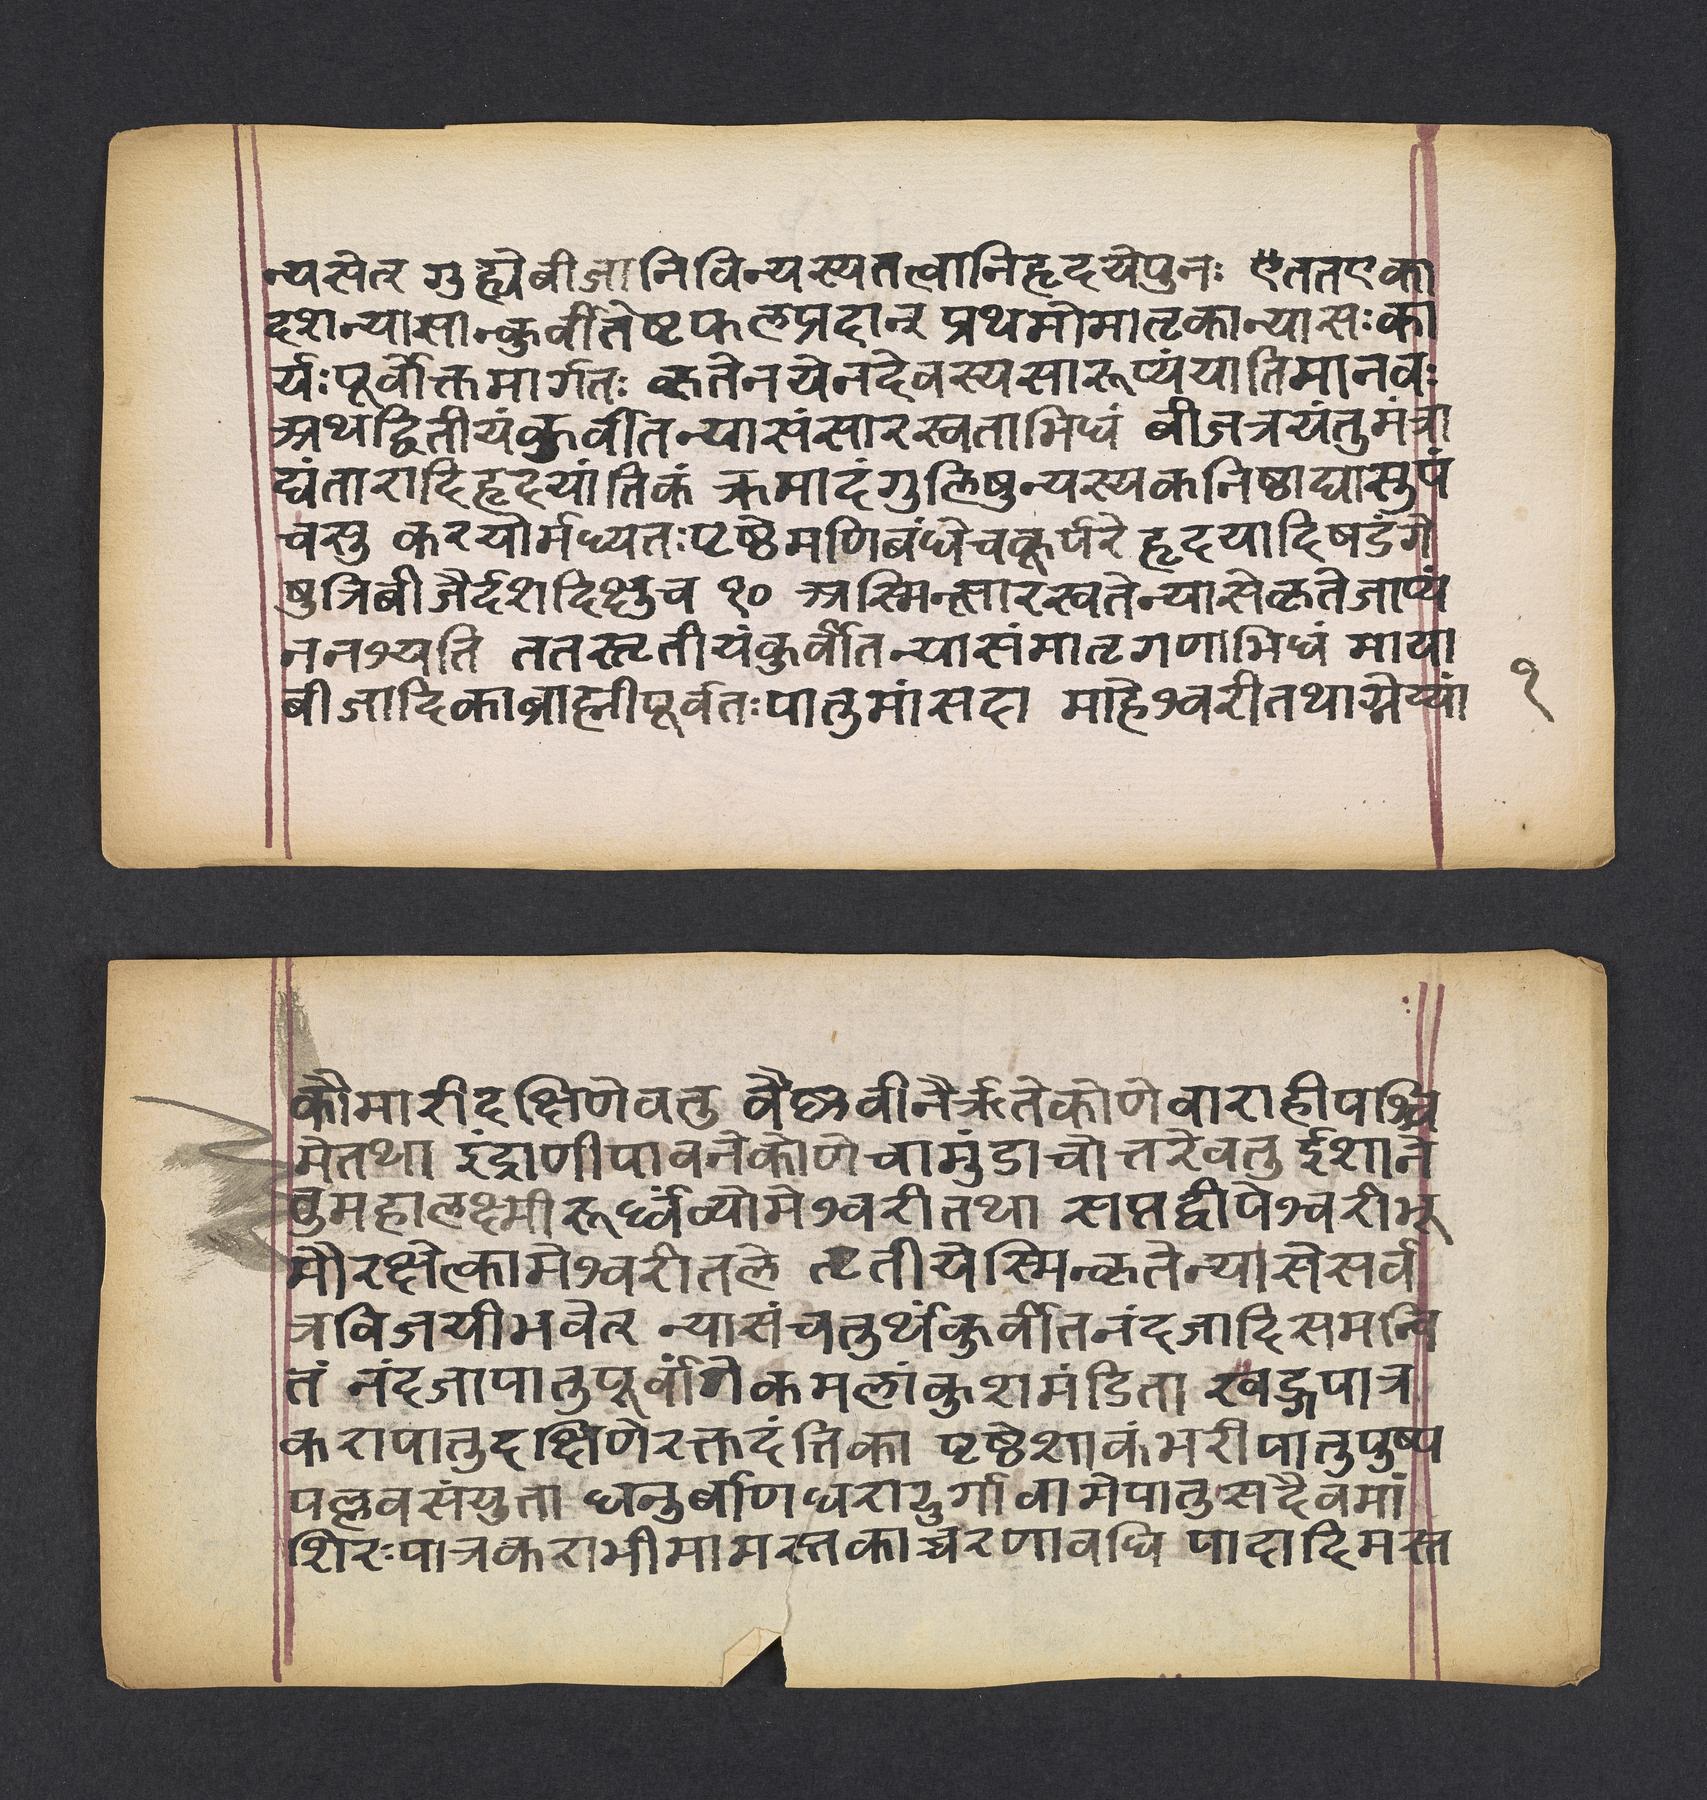 न्यसेत् गुह्येबीजानिविन्यस्यतत्वानिहृदयेपुनः एततएका
दशन्यासान्कुर्वीतेष्टफलप्रदान् प्रथमोमातृकान्यासःका
र्यःपूर्वोक्तमार्गतः कृतेनयेनदेवस्यसारूप्यंयातिमानवः
अथद्वितीयंकुर्वीतन्यासंसारस्वताभिधं बीजत्रयंतुमंत्रा
द्यंतारादिहृदयांतिकं क्रमादंगुलिषुन्यस्यकनिष्ठाद्यासुपं
चसु करयोर्मध्यतःपृष्ठेमणिबंधेचकूर्परे हृदयादिषडंगे
षुत्रिबीजैर्दशदिक्षुच १० अस्मिन्सारस्वतेन्यासेकृतेजाप्यं
ननश्यति ततस्तृतीयंकुर्वीतन्यासंमातृगणाभिधं माया
बीजादिकाब्राह्मीपूर्वतःपातुमांसदा माहेश्वरीतथाग्नेय्यां
१
कौमारीदक्षिणेवतु वैष्णवीनैर्ऋतेकोणेवाराहीपश्चि
मेतथा इंद्राणीपावनेकोणेचामुंडाचोत्तरेवतु ईशाने
तुमहालक्ष्मीरूर्ध्वंव्योमेश्वरीतथा सप्तद्वीपेश्वरीभू
मौरक्षेत्कामेश्वरीतले तृतीयेस्मिन्कृतेन्यासेसर्व
त्रविजयीभवेत् न्यासंचतुर्थंकुर्वीतनंदजादिसमन्वि
तं नंदजापातुपूर्वांगेकमलांकुशमंडिता खड्गपात्र
करापातुदक्षिणेरक्तदंतिका पृष्ठेशाकंभरीपातुपुष्प
पल्लवसंयुता धनुर्बाणधरादुर्गावामेपातुसदैवमां
शिरःपात्रकराभीमामस्तकाच्चरणावधि पादादिमस्त